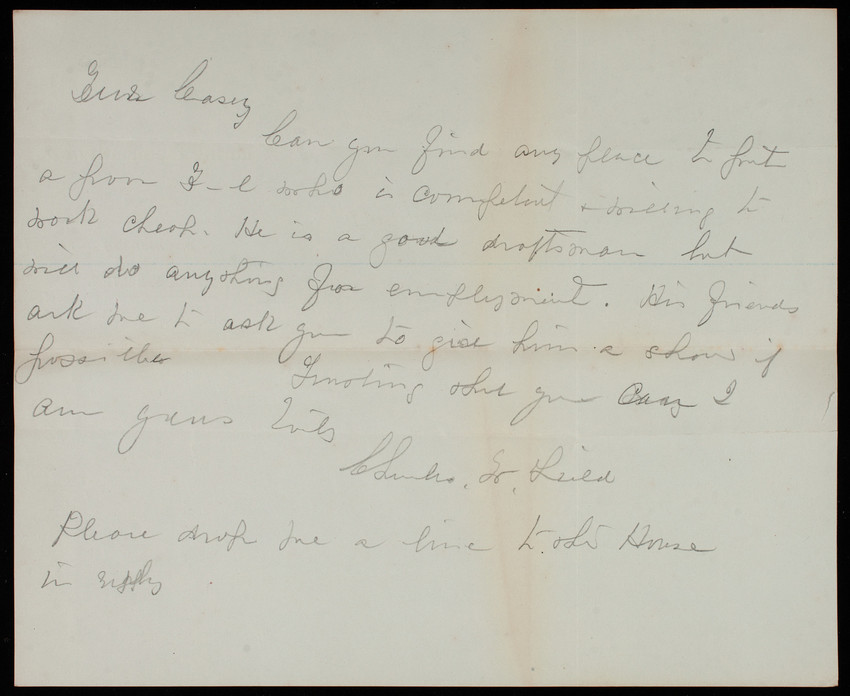 Genl Casey
Can you find any place to put
a poor who is competent & willing to
work cheap. He is a good draftsman but
will do anything for employment. His friends
ask me to ask you to give him a show if
possible
Trusting that you can I
am yours truly
Charles
Please drop me a line to the House
in reply.